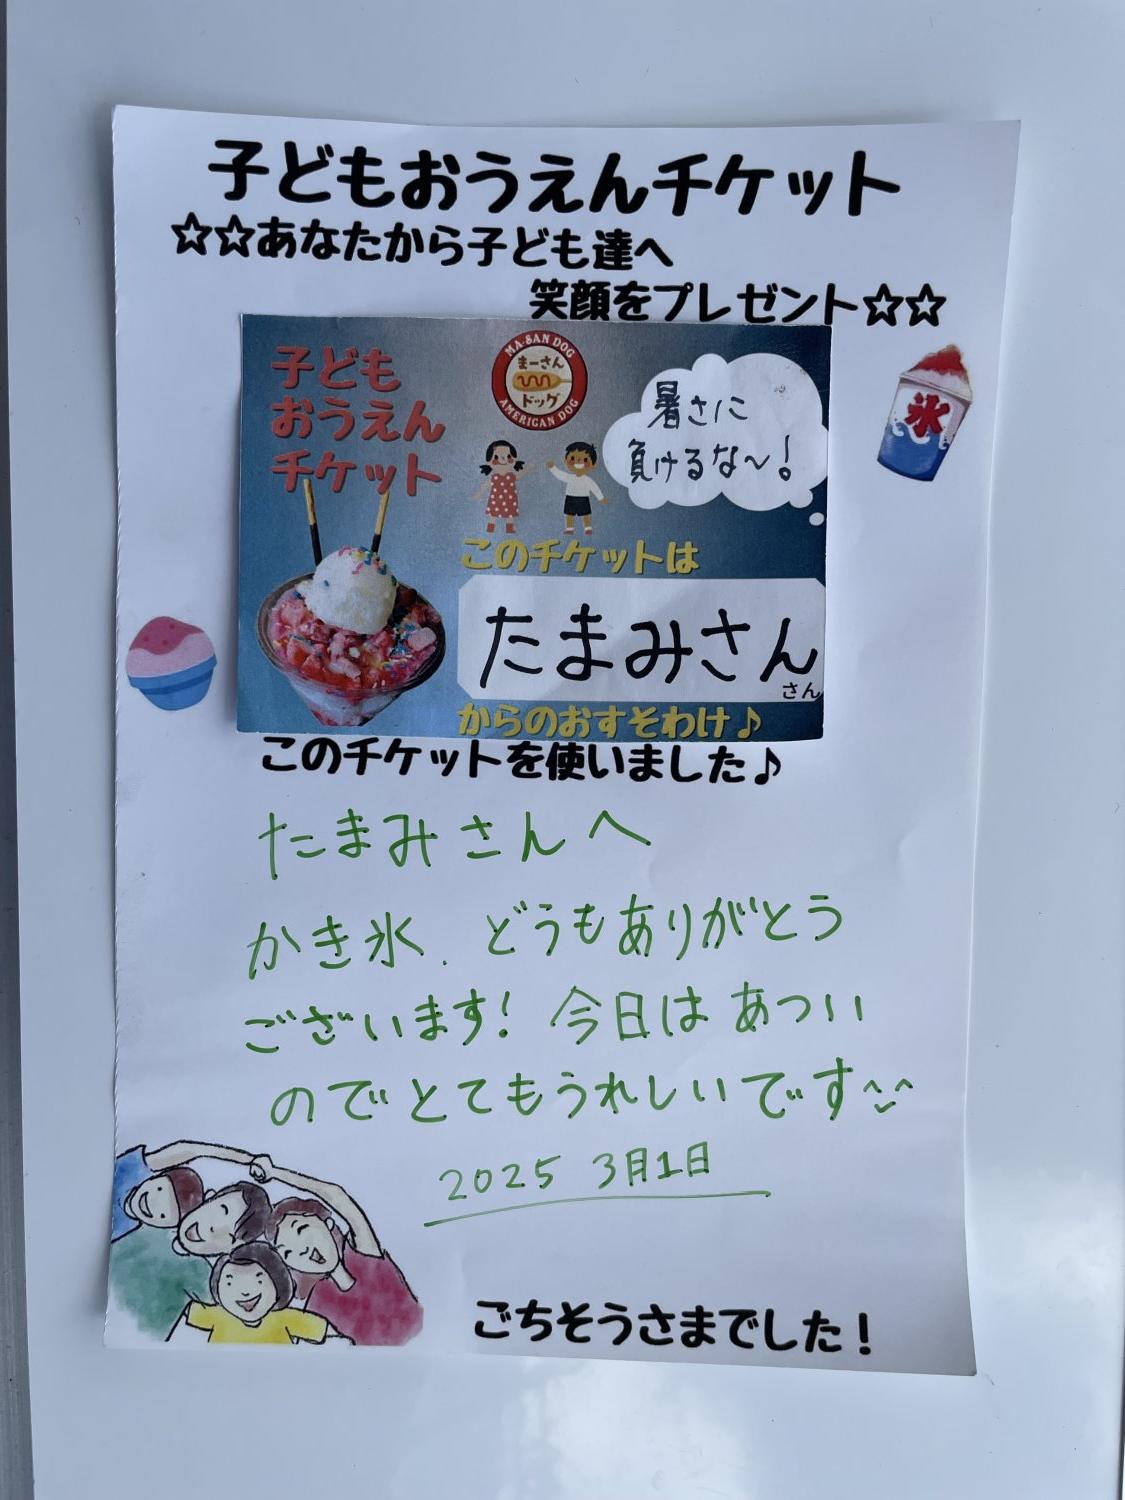 子どもおうえんチケット
☆☆あなたから子ども達へ
笑顔をプレゼント☆☆
子ども
おうえん
チケット
MA-SAN DOG
まーさん
ドッグ
AMERICAN DOG
暑さに
負けるな～！
氷
このチケットは
たまみさん
さん
からのおすそわけ♪
このチケットを使いました♪
たまみさんへ
かき氷、どうもありがとう
ございます！ 今日はあつい
のでとてもうれしいです^^
2025 3月1日
ごちそうさまでした！